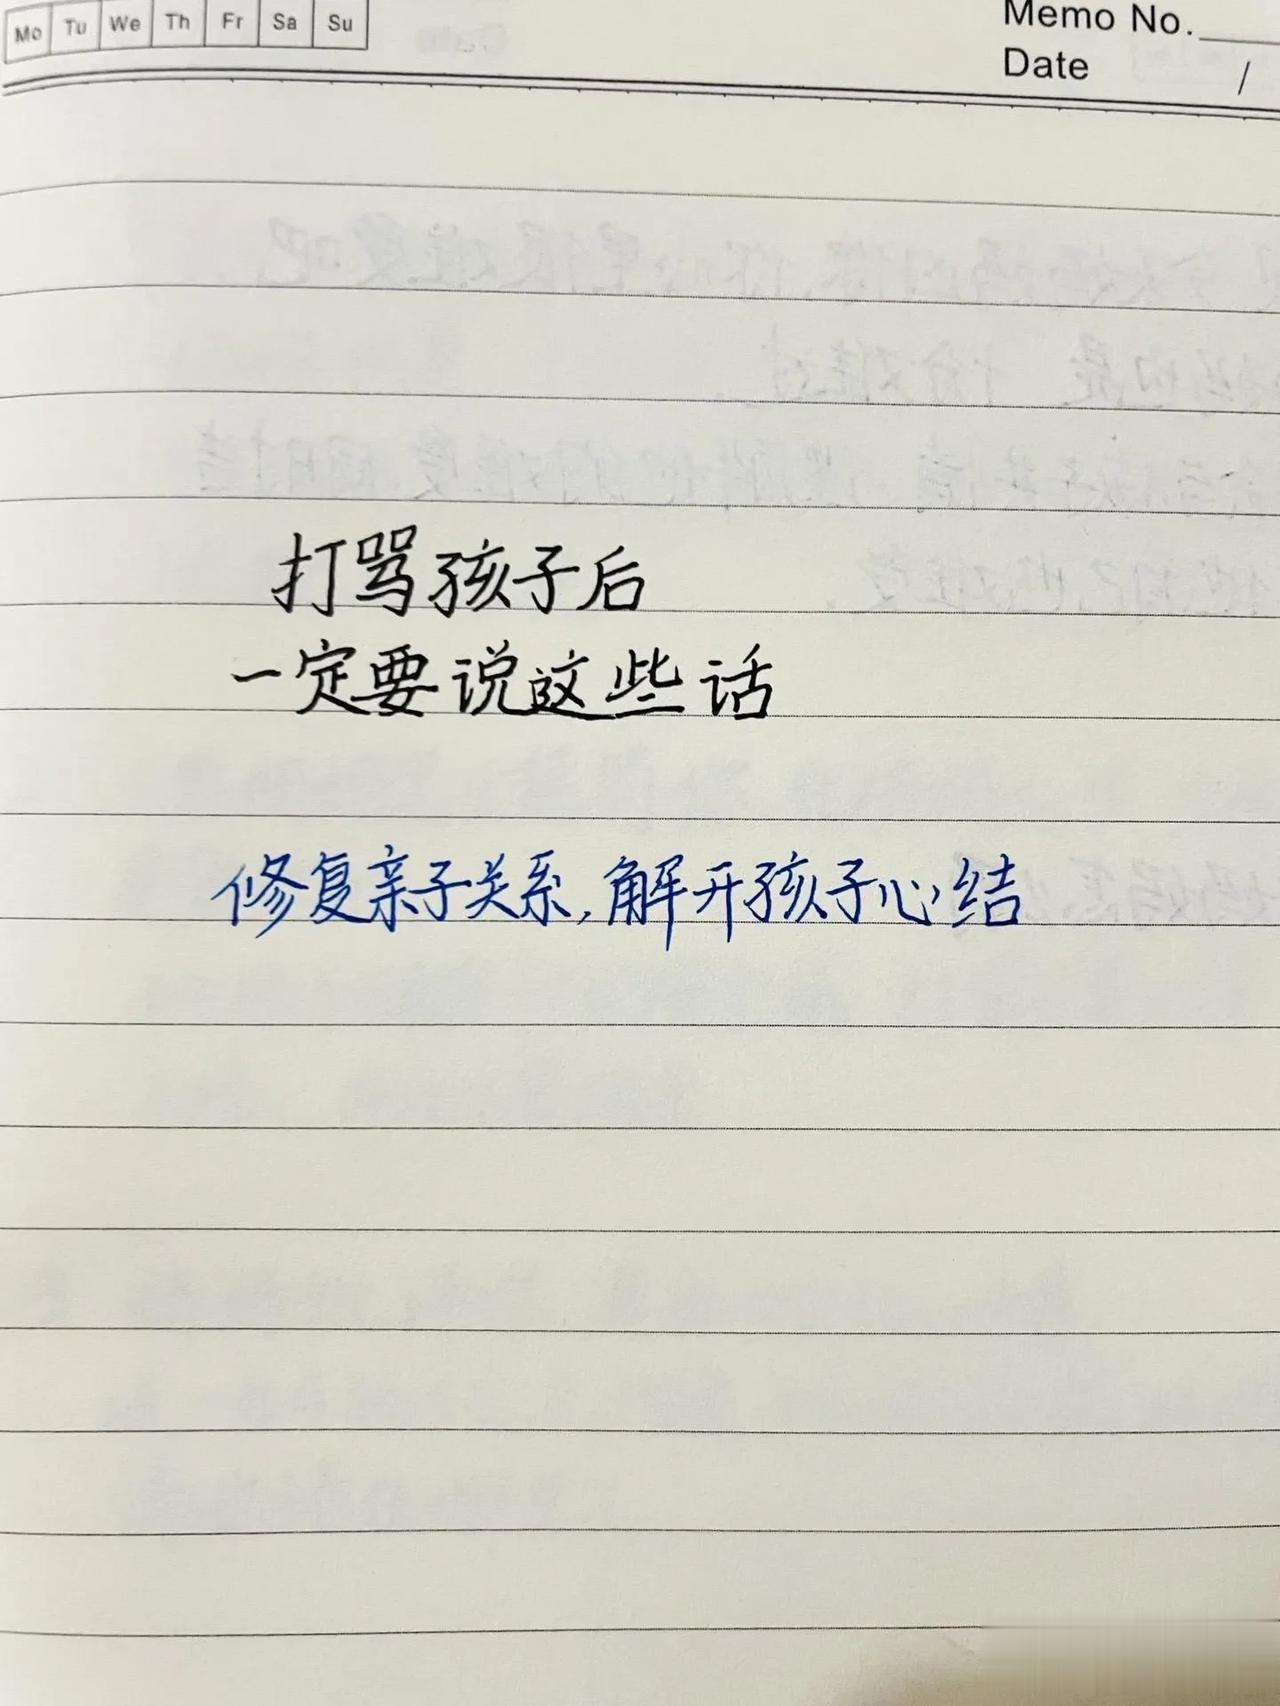 Mo Tu We Th Fr Sa Su
Memo No.
Date /
打骂孩子后
一定要说这些话
修复亲子关系,解开孩子心结